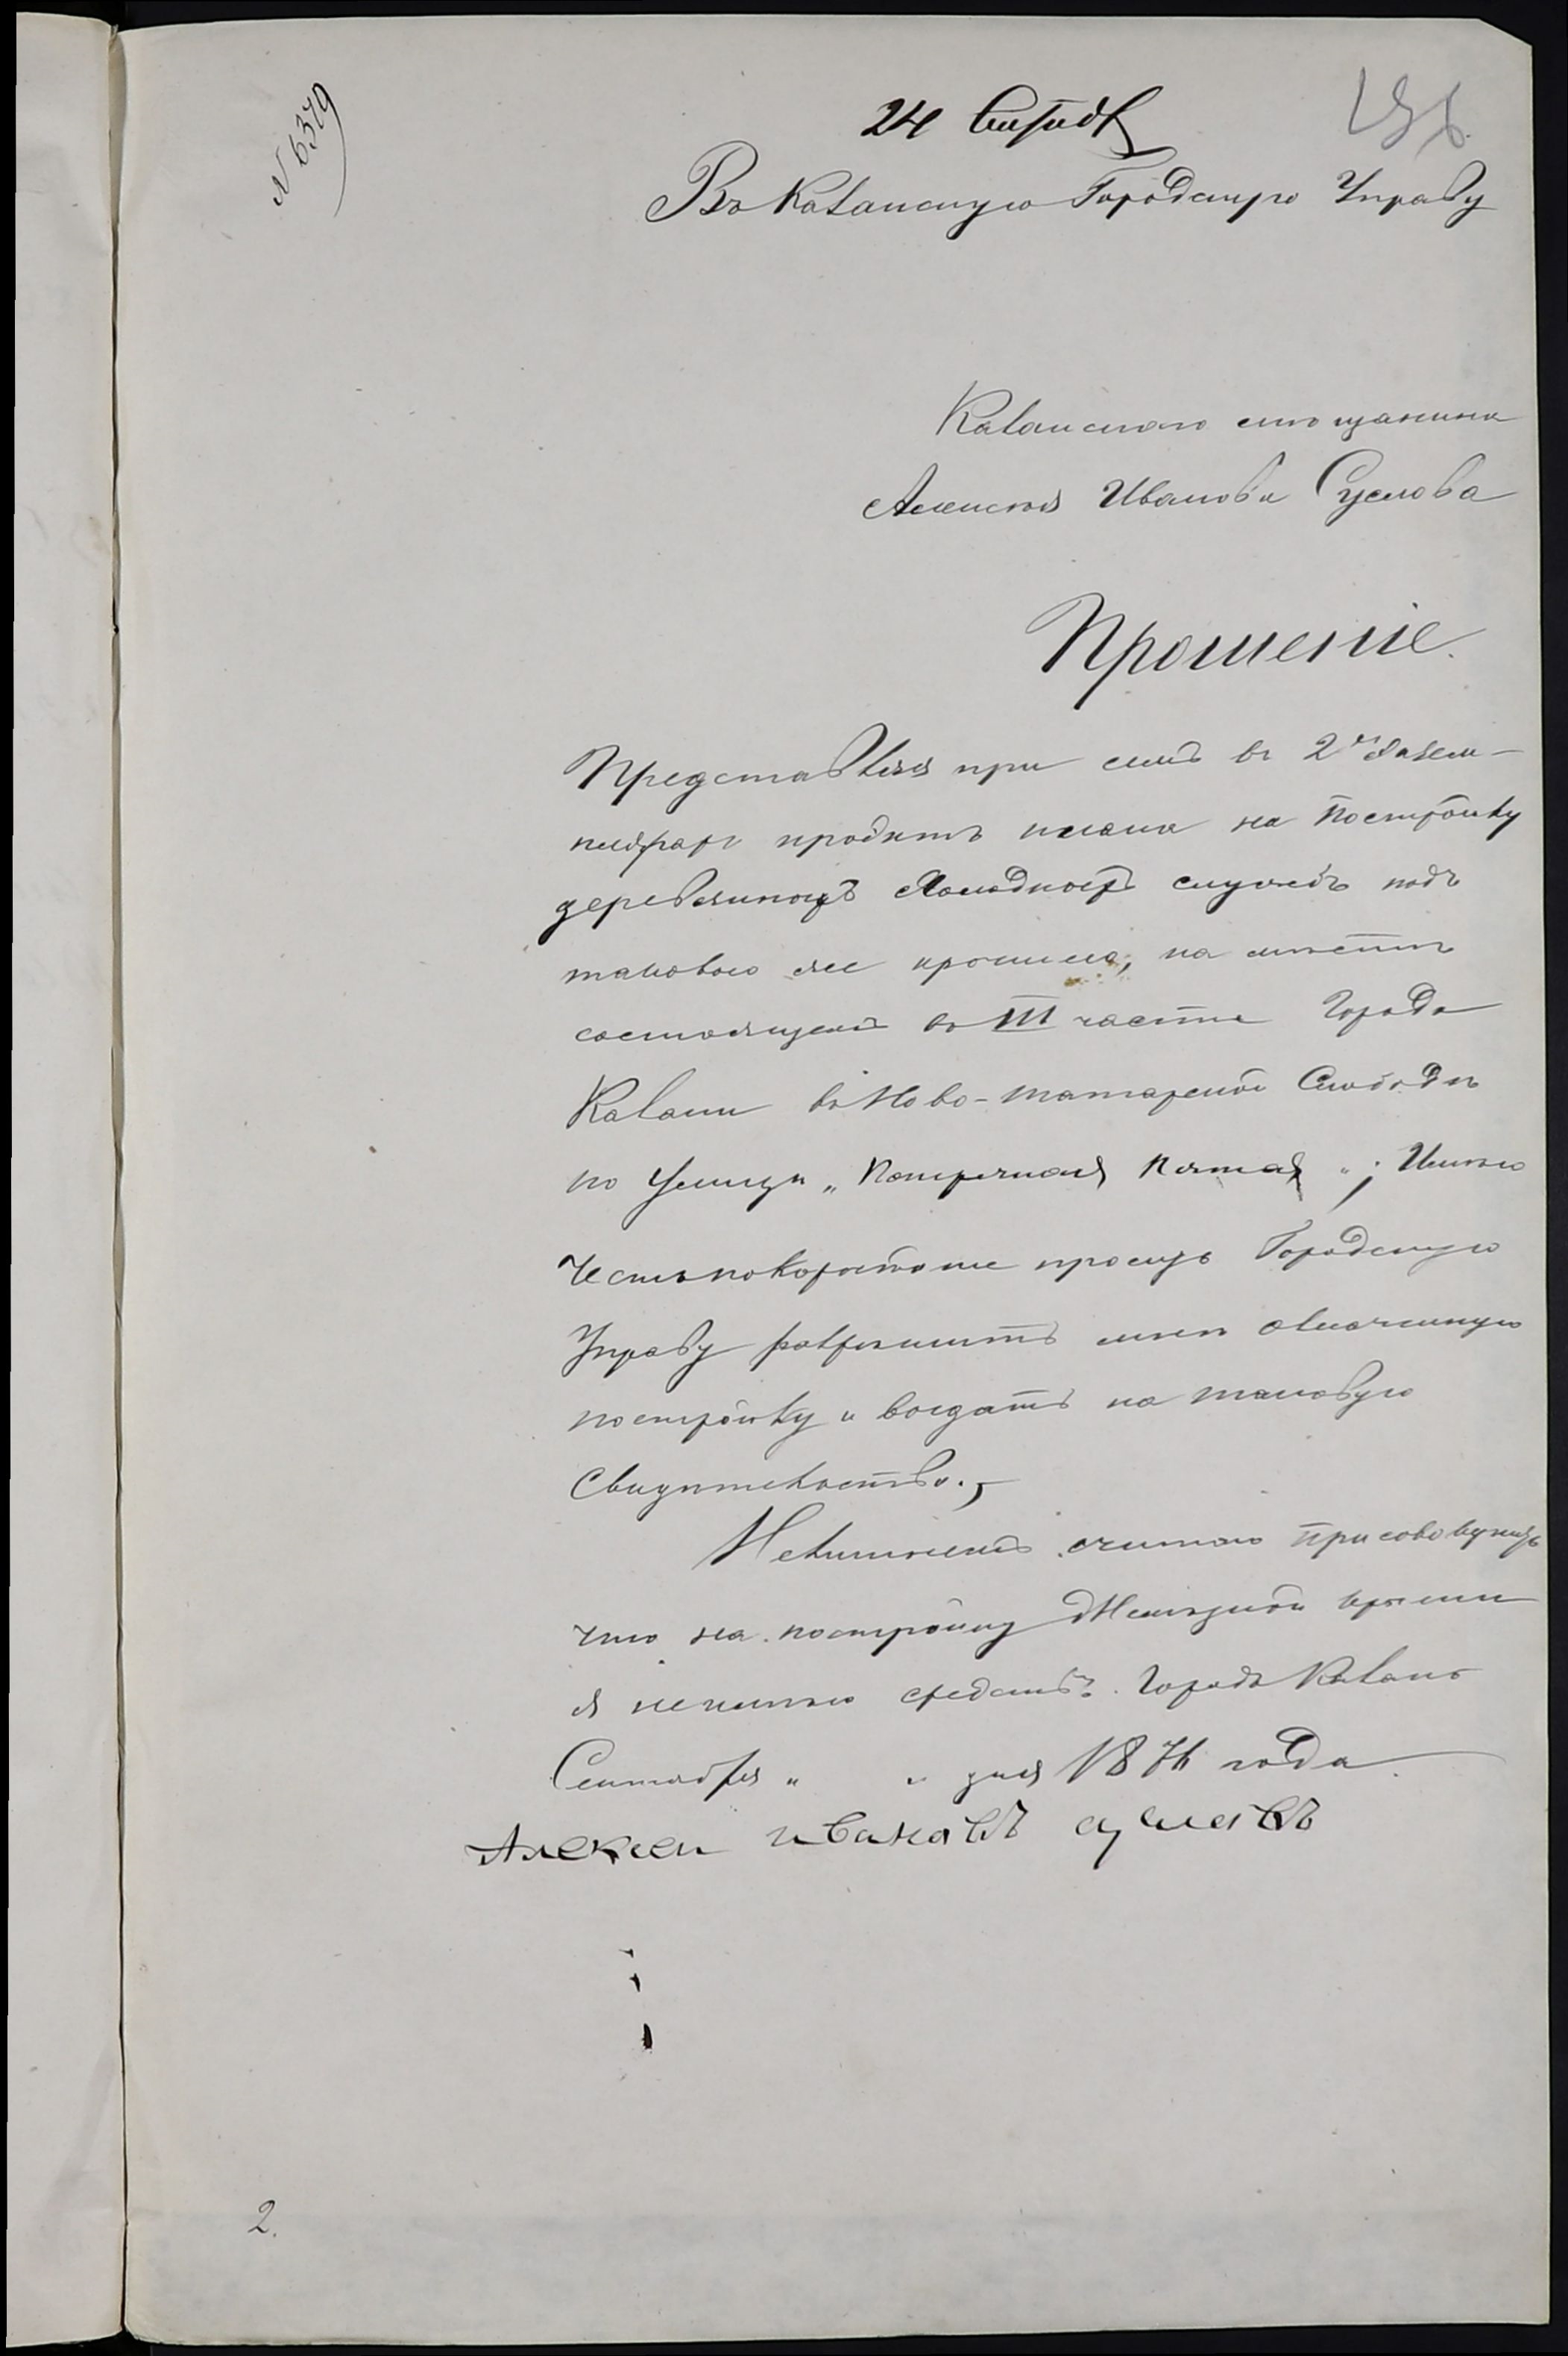 N 6379
24 Сентяб
Въ Казанскую Городскую Управу
Казанского мѣщанина
Алексѣя Иванова Суслова
Прошеніе.
Представляя при семъ въ 2хъ экзем-
плярахъ проэктъ плана на постройку
деревянныхъ холодныхъ службъ подъ
таковою же крышею, на мѣстѣ
состоящемъ въ III части Города
Казани въ Ново-татарской Слободѣ
по Улицѣ „Поперечная Пятая„; Имѣю
Честь покорнѣйше просить Городскую
Управу разрѣшить мнѣ означенную
постройку и выдать на таковую
Свидѣтельство.,
Нелишнимъ считаю присовокупить
что на постройку Желѣзной крыши
я неимѣю средствъ. Городъ Казань
Сентября „ „ дня 1876 года.
Алексеи ивановъ сусловъ
2.